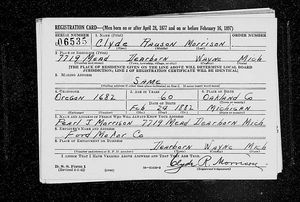 REGISTRATION CARD—(Men born on or after April 28, 1877 and on or before February 16, 1897)
SERIAL NUMBER 1. NAME (Print) ORDER NUMBER
U 06535 Clyde Rawson Morrison
(First) (Middle) (Last)
2. PLACE OF RESIDENCE (Print)
7719 Mead Dearborn Wayne Mich
(Number and street) (Town, township, village, or city) (County) (State)
[THE PLACE OF RESIDENCE GIVEN ON THE LINE ABOVE WILL DETERMINE LOCAL BOARD
JURISDICTION; LINE 2 OF REGISTRATION CERTIFICATE WILL BE IDENTICAL]
3. MAILING ADDRESS
SAME
4. TELEPHONE 5. AGE IN YEARS 6. PLACE OF BIRTH
Oregon 1682 60 Oakland Co
DATE OF BIRTH
Feb 24 1882 Michigan
7. NAME AND ADDRESS OF PERSON WHO WILL ALWAYS KNOW YOUR ADDRESS
Pearl J Morrison 7719 Mead Dearborn Mich
8. EMPLOYER'S NAME AND ADDRESS
Ford Motor Co
9. PLACE OF EMPLOYMENT OR BUSINESS
Dearborn Wayne Mich
I AFFIRM THAT I HAVE VERIFIED ABOVE ANSWERS AND THAT THEY ARE TRUE.
D. S. S. Form 1
Clyde R. Morrison